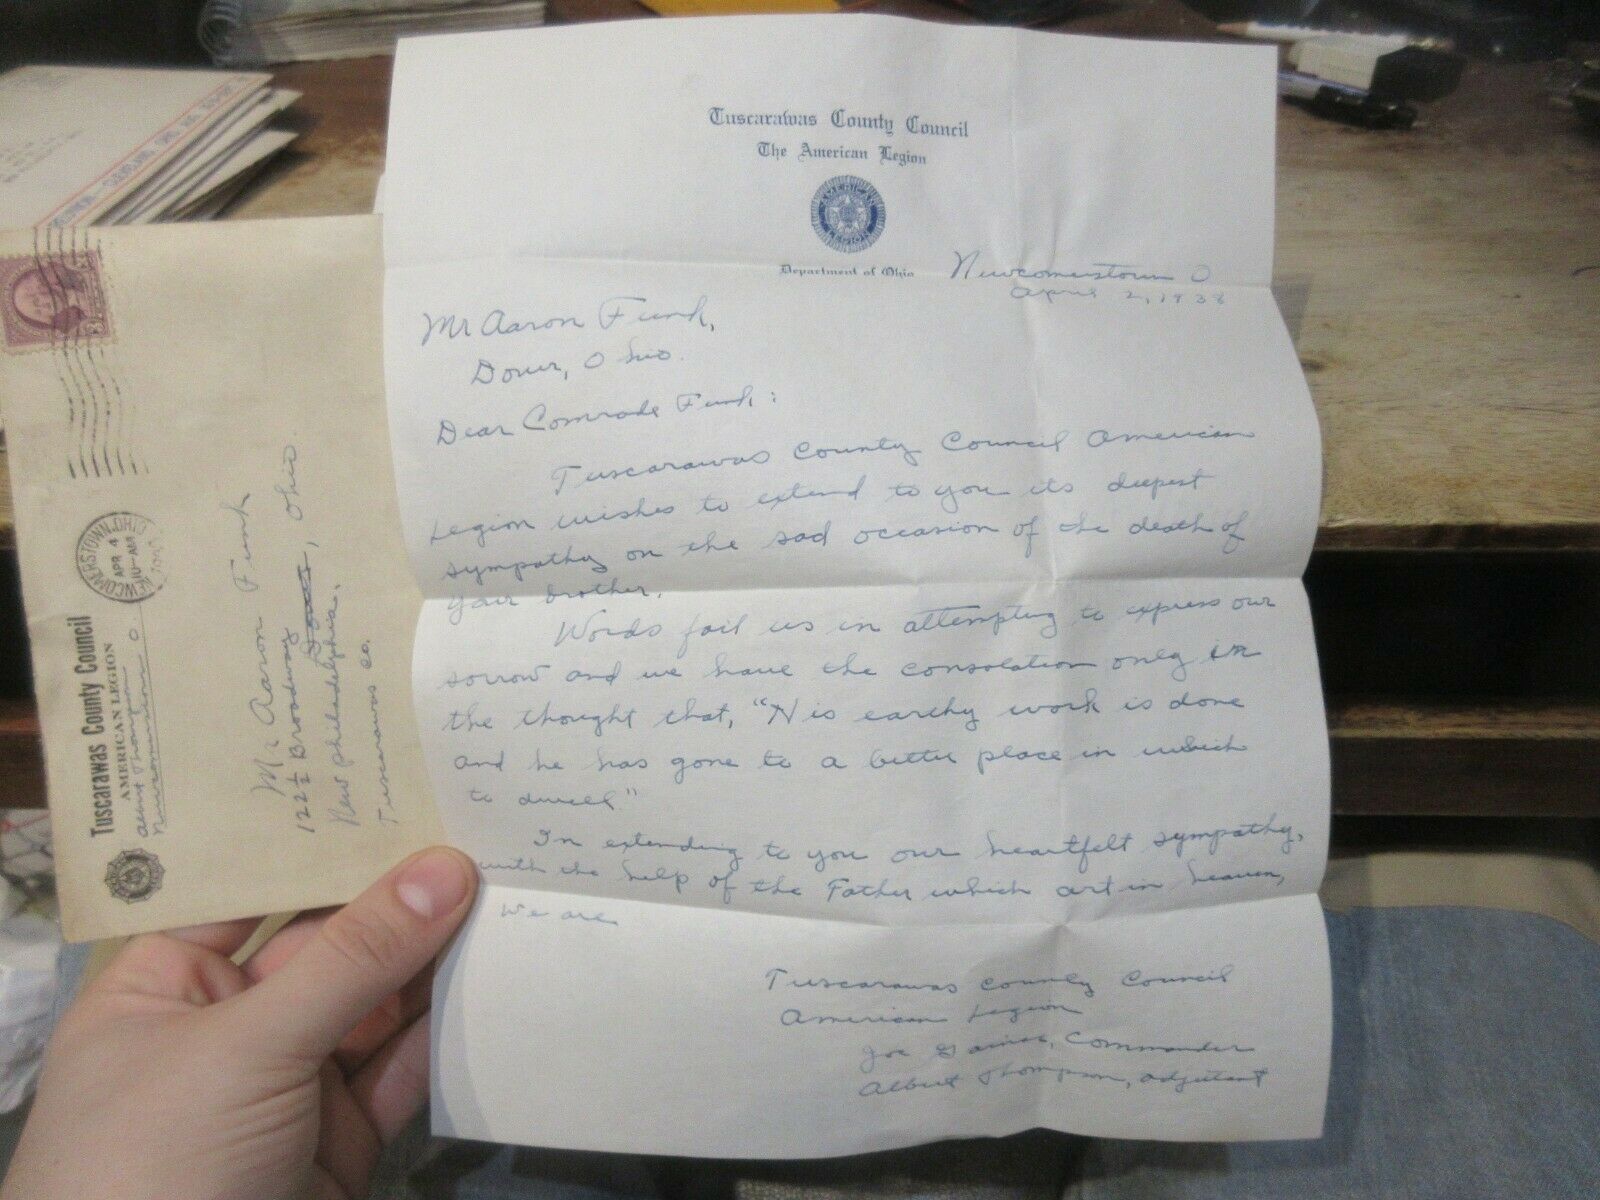 Tuscarawas County Council
The American Legion
AMERICAN
LEGION
Department of Ohio
Newcomerstown O
April 2, 1938
Mr Aaron Funk,
Dover, Ohio.
Dear Comrade Funk:
Tuscarawas County Council American
Legion wishes to extend to you its deepest
sympathy on the sad occasion of the death of
your brother.
Words fail us in attempting to express our
sorrow and we have the consolation only in
the thought that, "His earthy work is done
and he has gone to a better place in which
to dwell."
In extending to you our heartfelt sympathy,
with the help of the Father which art in heaven,
we are
Tuscarawas County Council
American Legion
Joe Commander
Albert Thompson, adjutant
Tuscarawas County Council
AMERICAN LEGION
Albert Thompson
Newcomerstown O
NEWCOMERSTOWN, OHIO
APR 4
10-AM
Mr Aaron Funk
122½ Broadway
Dover, Ohio.
New Philadelphia.
Tuscarawas co.